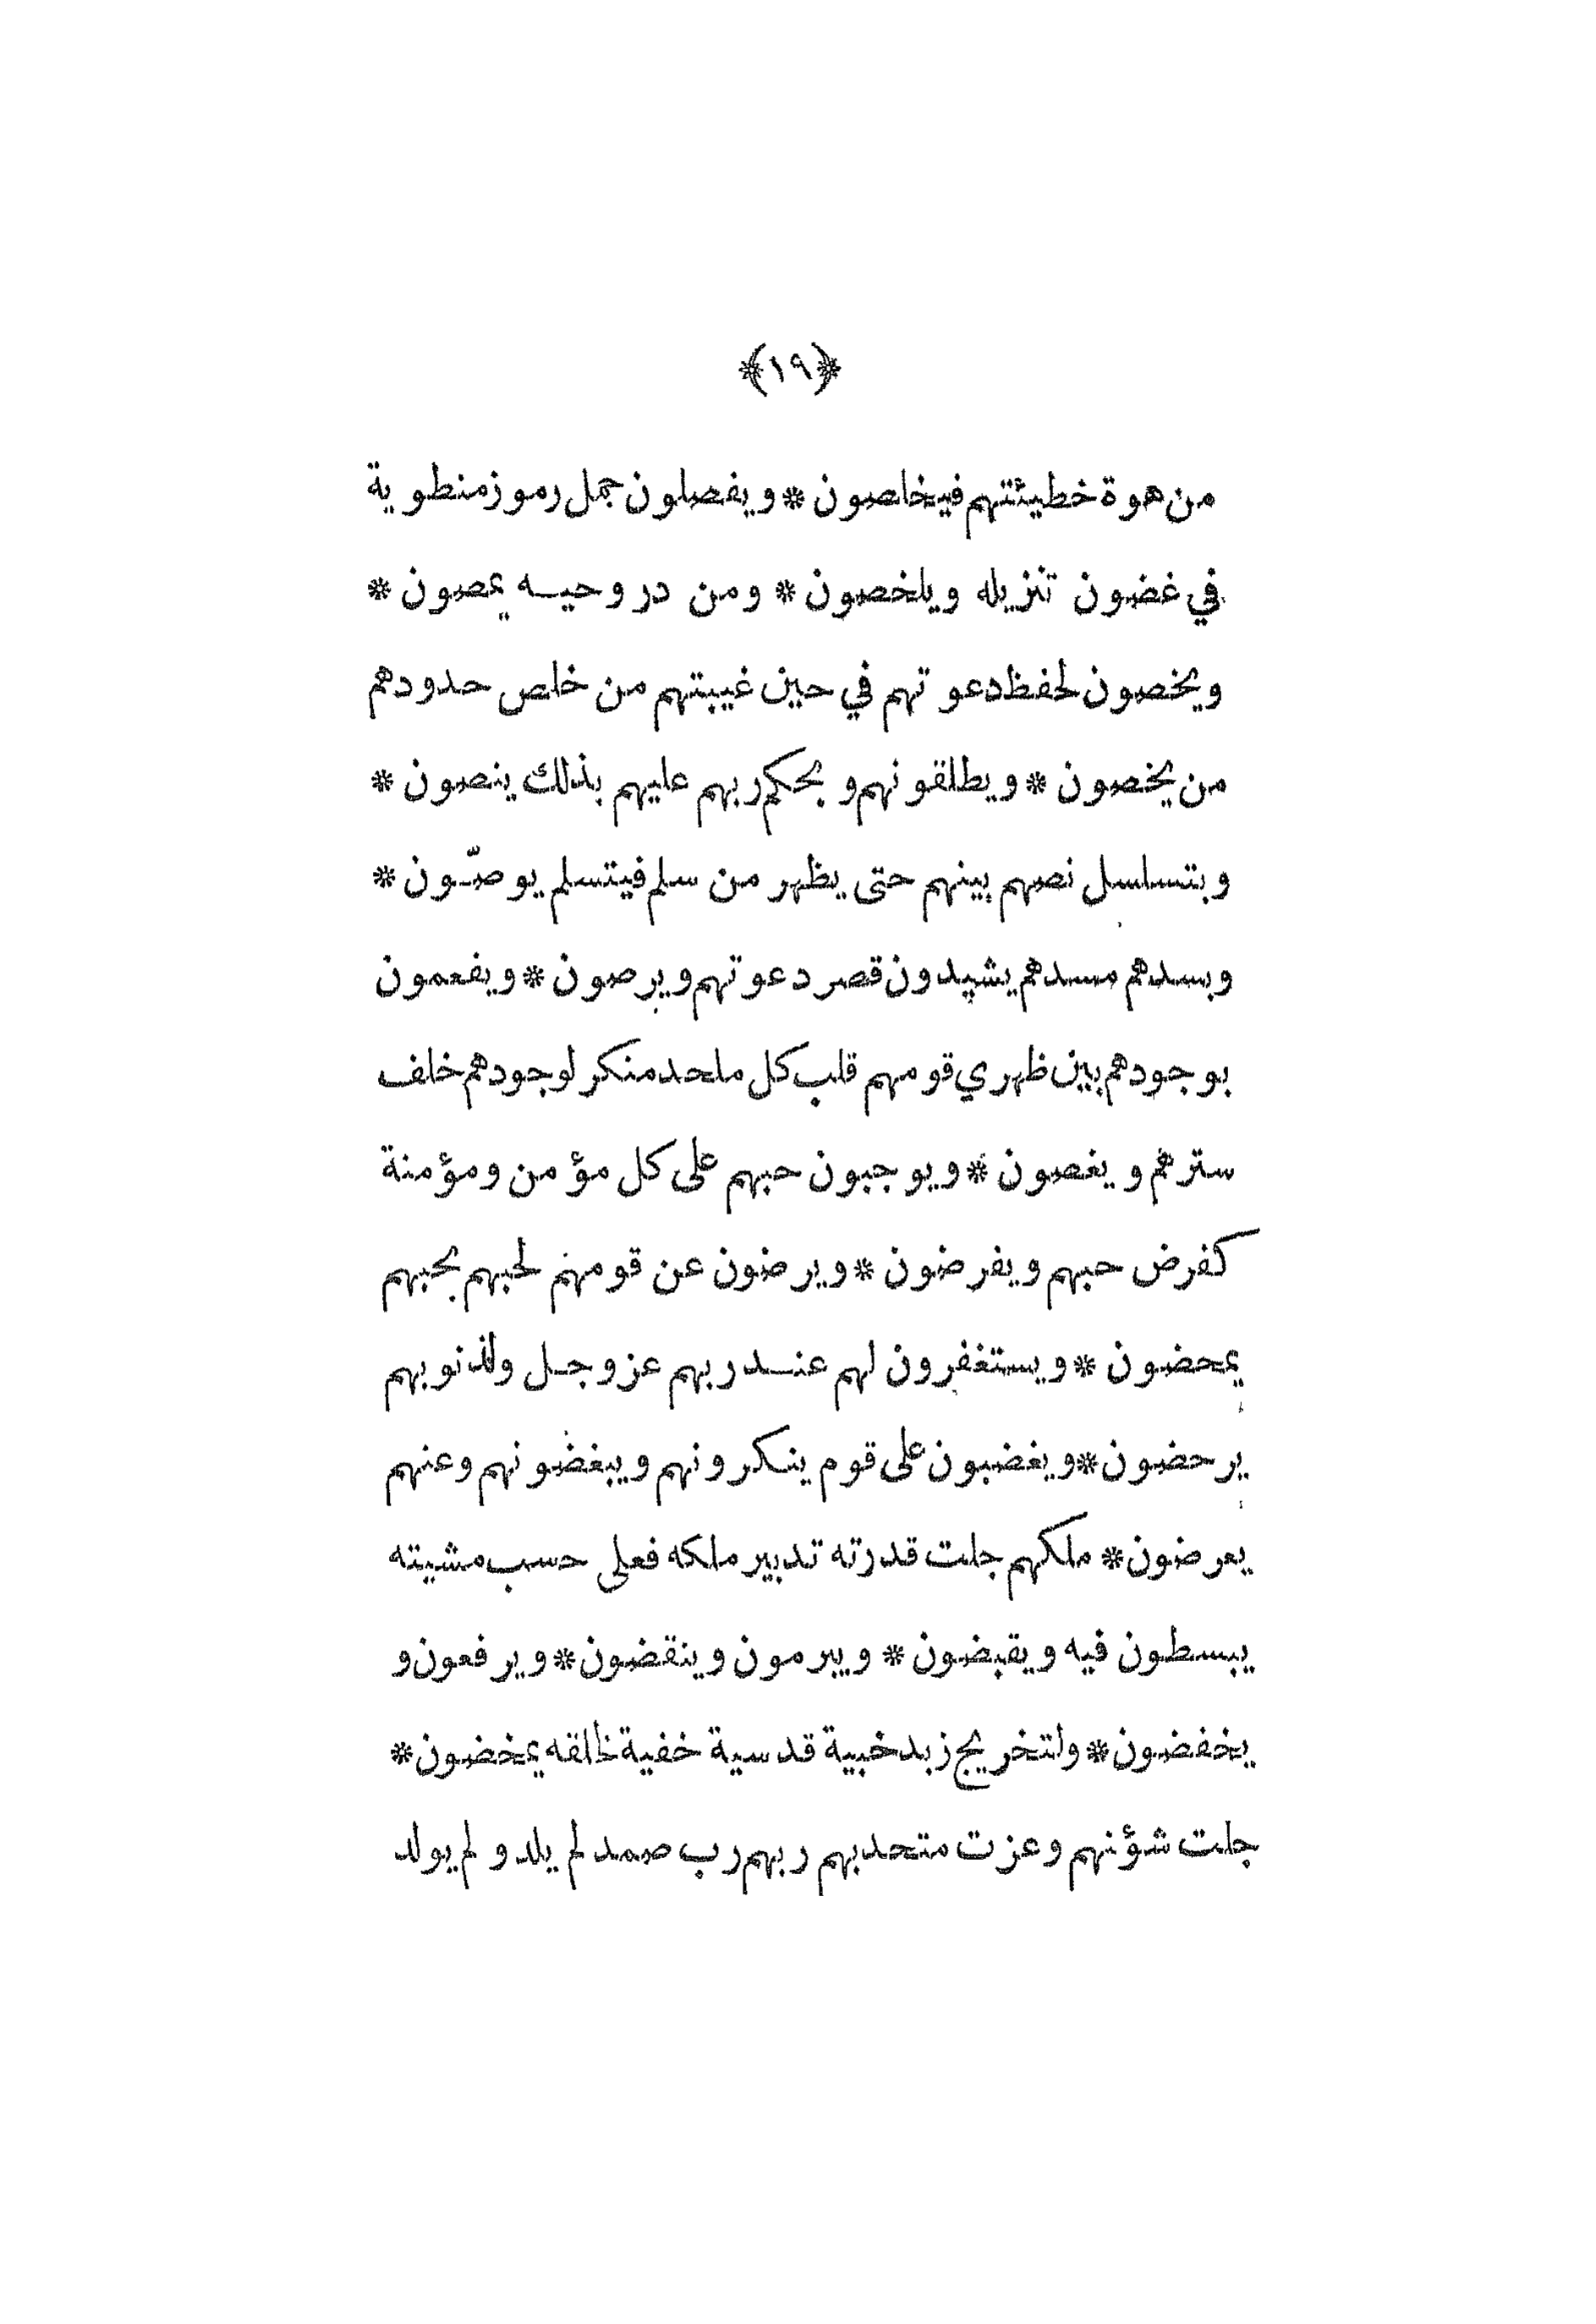 ﴿١٩﴾
من هوة خطيئتهم فيخلصون * ويفصلون جمل رموز منطوية
في غضون تنزيله ويلخصون * ومن در وحيه يمصون *
ويخصون لحفظ دعوتهم في حين غيبتهم من خلص حدودهم
من يخصون * ويطلقونهم وبحكم ربهم عليهم بذلك ينصون *
وبتسلسل نصهم بينهم حتى يظهر من سلم فيتسلم يوصّون *
وبسدهم مسدهم يشيدون قصر دعوتهم ويرصون * ويفعمون
بوجودهم بين ظهري قومهم قلب كل ملحد منكر لوجودهم خلف
سترهم ويغصون * ويوجبون حبهم على كل مؤمن ومؤمنة
كفرض حبهم ويفرضون * ويرضون عن قومهم لحبهم بحبهم
يمحضون * ويستغفرون لهم عند ربهم عز وجل ولذنوبهم
يرحضون * ويغضبون على قوم ينكرونهم ويبغضونهم وعنهم
يعرضون * ملكهم جلت قدرته تدبير ملكه فعلى حسب مشيته
يبسطون فيه ويقبضون * ويبرمون وينقضون * ويرفعون و
يخفضون * ولتخريج زبد خبية قدسية خفية لخلقه يمخضون *
جلت شؤنهم وعزت متحد بهم ربهم رب صمد لم يلد و لم يولد